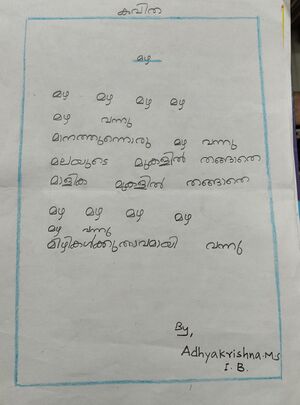 കവിത
മഴ
മഴ മഴ മഴ മഴ
മഴ വന്നു
മാനത്തുന്നൊരു മഴ വന്നു
മലയുടെ മുകളിൽ തങ്ങാതെ
മാളിക മുകളിൽ തങ്ങാതെ
മഴ മഴ മഴ മഴ
മഴ വന്നു
മിഴികൾക്കുത്സവമായി വന്നു
By,
Adhyakrishna.M.S
I.B.